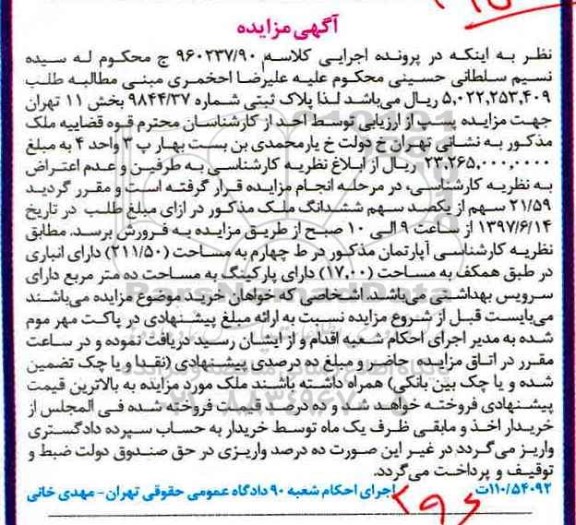 آگهی مزایده
نظر به اینکه در پرونده اجرایی کلاسه ۹۶۰۲۳۷/۹۰ ج محکوم له سیده
نسیم سلطانی حسینی محکوم علیه علیرضا احخمری مبنی مطالبه طلب
۵,۰۲۲,۲۵۳,۴۰۹ ریال می‌باشد لذا پلاک ثبتی شماره ۹۸۴۴/۳۷ بخش ۱۱ تهران
جهت مزایده پیـپ از ارزیابی توسط احد از کارشناسان محترم قوه قضاییه ملک
مذکور به نشانی تهران خ دولت خ یارمحمدی بن بست بهار پ ۳ واحد ۴ به مبلغ
۲۳,۲۶۵,۰۰۰,۰۰۰ ریال از ابلاغ نظریه کارشناسی به طرفین و عدم اعتراض
به نظریه کارشناسی، در مرحله انجام مزایده قرار گرفته است و مقرر گردید
۲۱/۵۹ سهم از یکصد سهم ششدانگ ملک مذکور در ازای مبلغ طلب در تاریخ
۱۳۹۷/۶/۱۴ از ساعت ۹ الی ۱۰ صبح از طریق مزایده به فرورش برسد. مطابق
نظریه کارشناسی آپارتمان مذکور در ط چهارم به مساحت (۲۱۱/۵۰) دارای انباری
در طبق همکف به مساحت (۱۷,۰۰) دارای پارکینگ به مساحت ده متر مربع دارای
سرویس بهداشتی می‌باشد. اشخاصی که خواهان خرید موضوع مزایده می‌باشند
می‌بایست قبل از شروع مزایده نسبت به ارائه مبلغ پیشنهادی در پاکت مهر موم
شده به مدیر اجرای احکام شعبه اقدام و از ایشان رسید دریافت نموده و در ساعت
مقرر در اتاق مزایده حاضر و مبلغ ده درصدی پیشنهادی (نقدا و یا چک تضمین
شده و یا چک بین بانکی) همراه داشته باشند ملک مورد مزایده به بالاترین قیمت
پیشنهادی فروخته خواهد شد و ده درصد قیمت فروخته شده فی المجلس از
خریدار اخذ و مابقی ظرف یک ماه توسط خریدار به حساب سپرده دادگستری
واریز می‌گردد در غیر این صورت ده درصد واریزی در حق صندوق دولت ضبط و
توقیف و پرداخت می‌گردد.
۱۱۰/۵۴۰۹۲ت اجرای احکام شعبه ۹۰ دادگاه عمومی حقوقی تهران - مهدی خانی
۲۹۶